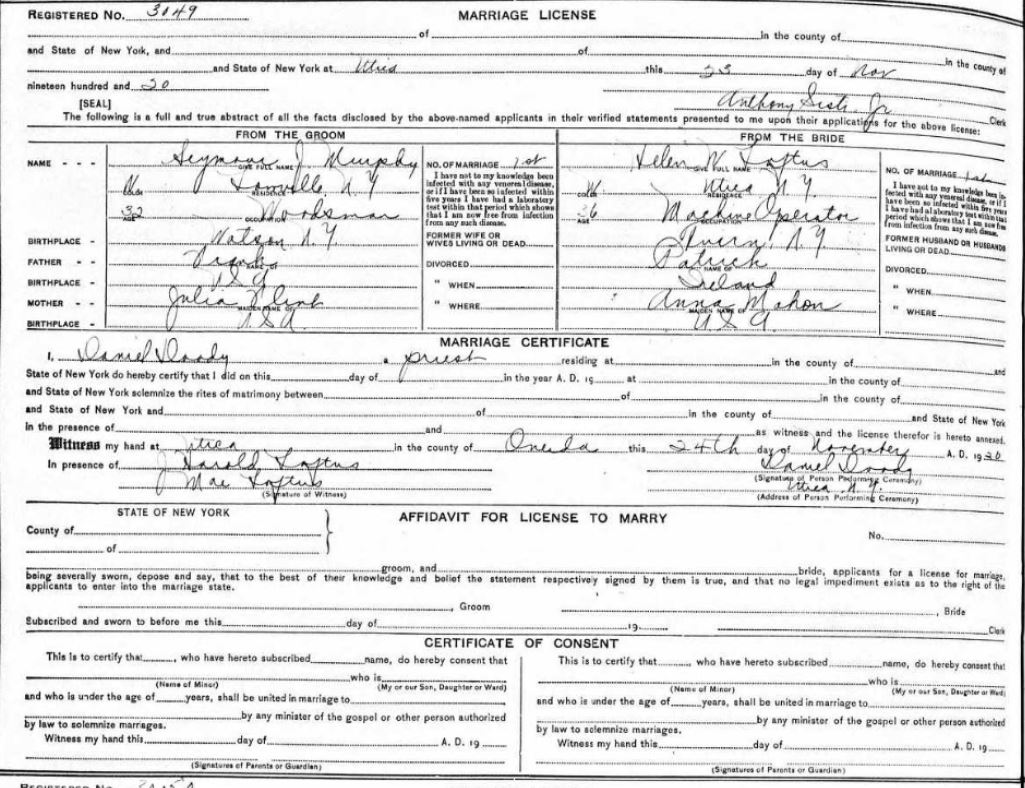 REGISTERED No. 3049 MARRIAGE LICENSE
of in the county of
and State of New York, and of in the county of
and State of New York at Utica this 23 day of Nov
nineteen hundred and 20
[SEAL] Anthony Sisti Jr. Clerk
The following is a full and true abstract of all the facts disclosed by the above-named applicants in their verified statements presented to me upon their applications for the above license:
FROM THE GROOM
NAME - - - Seymour J. Murphy
GIVE FULL NAME
W Lowville, N.Y
COLOR RESIDENCE
32 Woodsman
AGE OCCUPATION
BIRTHPLACE - Watson N.Y
FATHER - - Frank
NAME OF
BIRTHPLACE - USA
MOTHER - - Julia
MAIDEN NAME OF
BIRTHPLACE - USA
NO. OF MARRIAGE 1st
I have not to my knowledge been
infected with any venereal disease,
or if I have been so infected within
five years I have had a laboratory
test within that period which shows
that I am now free from infection
from any such disease.
FORMER WIFE OR
WIVES LIVING OR DEAD
DIVORCED
" WHEN
" WHERE
FROM THE BRIDE
Helen K. Loftus
GIVE FULL NAME
W Utica N.Y
COLOR RESIDENCE
36 Machine Operator
AGE OCCUPATION
N.Y
Patrick
NAME OF
Ireland
Anna Mahon
MAIDEN NAME OF
USA
NO. OF MARRIAGE 1st
I have not to my knowledge been in-
fected with any venereal disease, or if I
have been so infected within five years
I have had a laboratory test within that
period which shows that I am now free
from infection from any such disease.
FORMER HUSBAND OR HUSBANDS
LIVING OR DEAD
DIVORCED
" WHEN
" WHERE
MARRIAGE CERTIFICATE
I, Daniel Doody a priest residing at in the county of and
State of New York do hereby certify that I did on this day of in the year A. D. 19 at in the county of
and State of New York solemnize the rites of matrimony between of in the county of
and State of New York and of in the county of and State of New York
in the presence of and as witness and the license therefor is hereto annexed.
Witness my hand at Utica in the county of Oneida this 24th day of November A. D. 1920
In presence of J Harold Loftus Daniel Doody
(Signature of Person Performing Ceremony)
Mae Loftus Utica N.Y.
(Signature of Witness) (Address of Person Performing Ceremony)
STATE OF NEW YORK
County of
of
AFFIDAVIT FOR LICENSE TO MARRY
No.
groom, and bride, applicants for a license for marriage,
being severally sworn, depose and say, that to the best of their knowledge and belief the statement respectively signed by them is true, and that no legal impediment exists as to the right of the
applicants to enter into the marriage state.
, Groom , Bride
Subscribed and sworn to before me this day of 19 Clerk
CERTIFICATE OF CONSENT
This is to certify that , who have hereto subscribed name, do hereby consent that
who is
(Name of Minor) (My or our Son, Daughter or Ward)
and who is under the age of years, shall be united in marriage to
by any minister of the gospel or other person authorized
by law to solemnize marriages.
Witness my hand this day of A. D. 19
(Signatures of Parents or Guardian)
This is to certify that , who have hereto subscribed name, do hereby consent that
who is
(Name of Minor) (My or our Son, Daughter or Ward)
and who is under the age of years, shall be united in marriage to
by any minister of the gospel or other person authorized
by law to solemnize marriages.
Witness my hand this day of A. D. 19
(Signatures of Parents or Guardian)